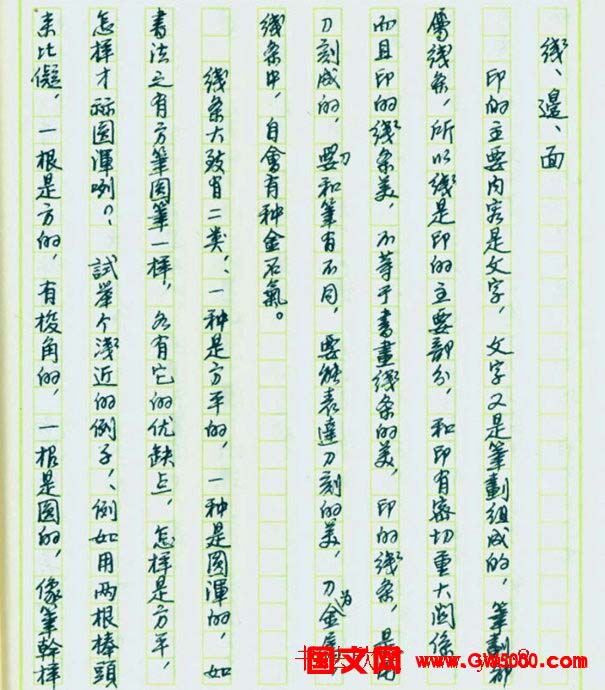 线、邊、面
印的主要内容是文字，文字又是筆劃组成的，筆劃都
屬线条，所以线是印的主要部分，和印有密切重大関係
而且印的线条美，不等于書畫线条的美，印的线条，是用
刀刻成的，刀和筆有不同，要能表達刀刻的美，刀為金属
线条中，自會有种金石氣。
线条大致有二类，一种是方平的，一种是圆渾的，如
書法之有方筆圆筆一样，各有它的优缺点，怎样是方平，
怎样才称圆渾咧？試举个浅近的例子，例如用两根棒頭
来比儗，一根是方的，有棱角的，一根是圆的，像筆幹样
国文网 www.GW5000.com